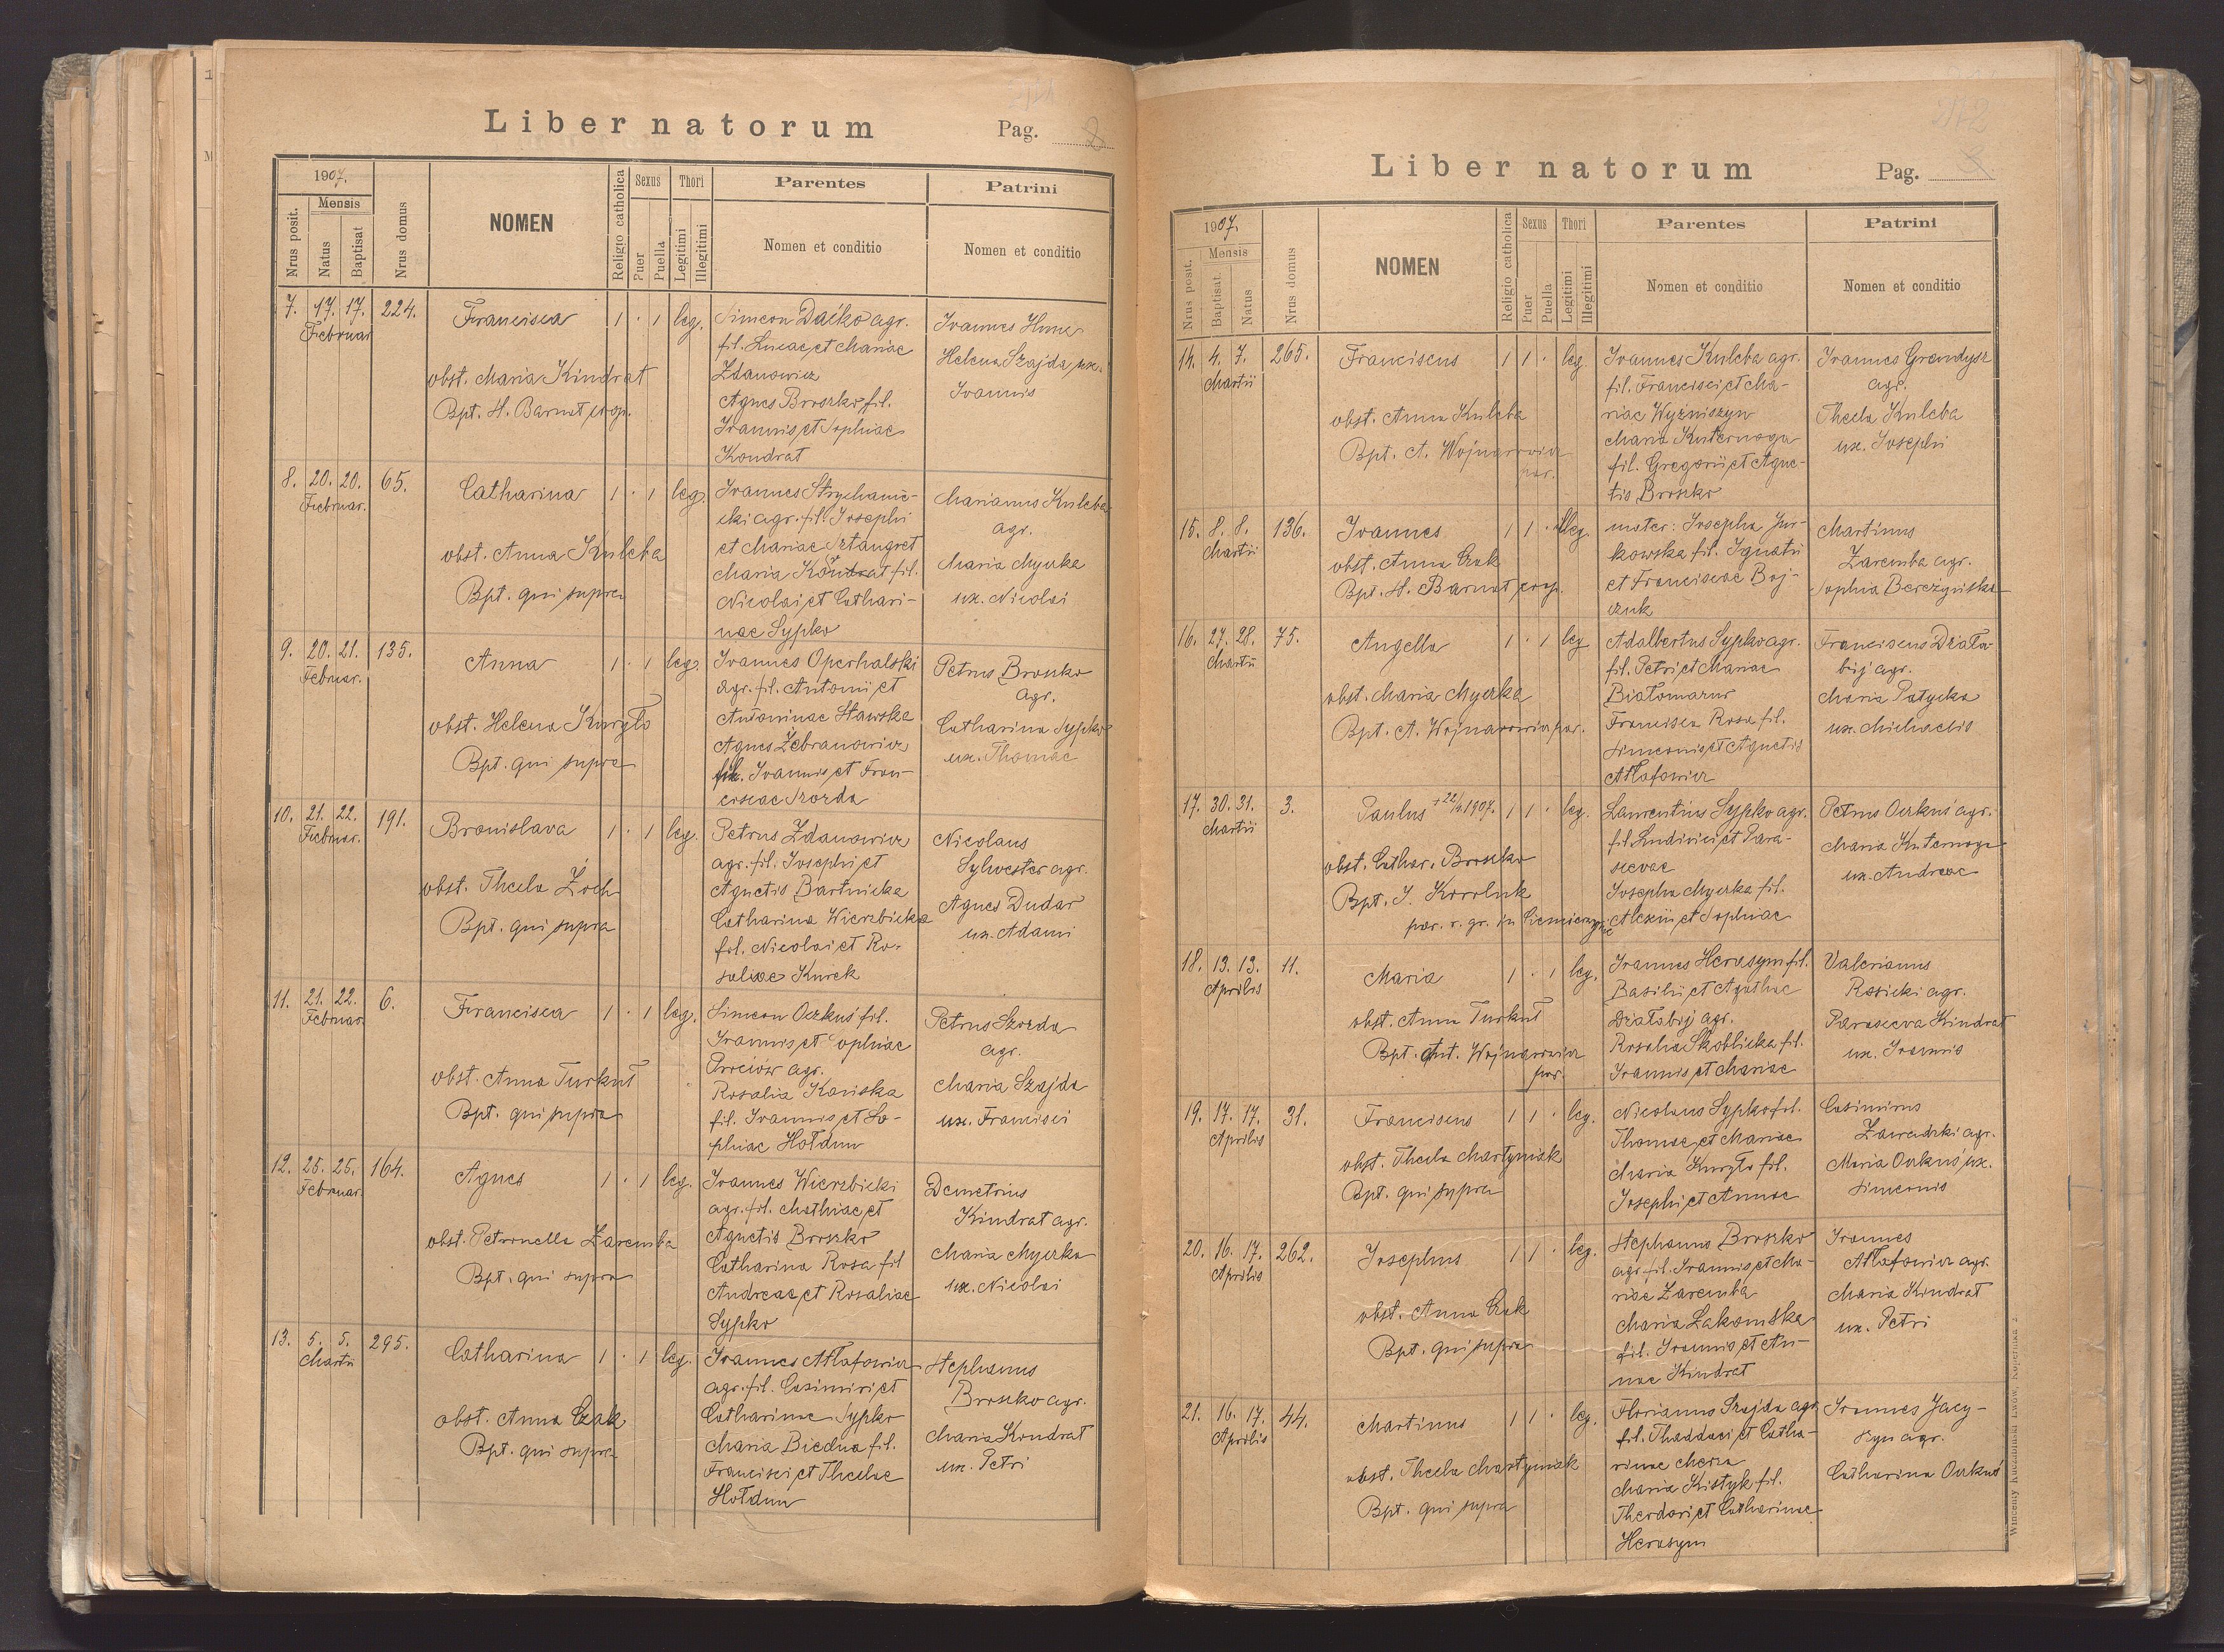 Liber natorum
Pag. 2
1907.
Mensis
Nrus posit.
Natus
Baptisat
Nrus domus
NOMEN
Religio catholica
Sexus
Puer
Puella
Thori
Legitimi
Illegitimi
Parentes
Nomen et conditio
Patrini
Nomen et conditio
7. 17. 17. 224.
Februar
Francisca 1 · 1 leg.
obst. Maria Kindrat
Bpt. H. Barnat exp.
Simeon Daćko agr.
fil. Lucae et Mariae
Zdanowicz
Agnes Broszko fil.
Ioannis et Sophiae
Kondrat
Ioannes
Helena Szajda ux.
Ioannis
8. 20. 20. 65.
Februar.
Catharina 1 · 1 leg.
obst. Anna Kuleba
Bpt. qui supra
Ioannes Strychanie-
cki agr. fil. Iosephi
et Mariae Sztangret
Maria Kondrat fil.
Nicolai et Cathari-
nae Sypko
Marianus Kuleba
agr.
Maria Mycka
ux. Nicolai
9. 20. 21. 135.
Februar.
Anna 1 · 1 leg.
obst. Helena Kuryło
Bpt. qui supra
Ioannes Operhalski
agr. fil. Antonii et
Antoninae Stawska
Agnes Żebranowicz
fil. Ioannis et Fran-
ciscae Szozda
Petrus Broszko
agr.
Catharina Sypko
ux. Thomae
10. 21. 22. 191.
Februar.
Bronislava 1 · 1 leg.
obst. Thecla Żoch
Bpt. qui supra
Petrus Zdanowicz
agr. fil. Iosephi et
Agnetis Bartnicka
Catharina Wierzbicka
fil. Nicolai et Ro-
saliae Kurek
Nicolaus
Sylwester agr.
Agnes Dudar
ux. Adami
11. 21. 22. 6.
Februar.
Francisca 1 · 1 leg.
obst. Anna Turkuł
Bpt. qui supra
Simeon Oczkuś fil.
Ioannis et Sophiae
agr.
Rosalia Kańska
fil. Ioannis et So-
phiae Hołdun
Petrus Szozda
agr.
Maria Szajda
ux. Francisci
12. 25. 25. 164.
Februar.
Agnes 1 · 1 leg.
obst. Petronella Zaremba
Bpt. qui supra
Ioannes Wierzbicki
agr. fil. Mathiae et
Agnetis Broszko
Catharina Rosa fil
Andreae et Rosaliae
Sypko
Demetrius
Kindrat agr.
Maria Mycka
ux. Nicolai
13. 5. 5. 295.
Martii
Catharina 1 · 1 leg.
obst. Anna Czak
Bpt. qui supra
Ioannes Atłafowicz
agr. fil. Casimiri et
Catharinae Sypko
Maria Biedna fil.
Francisci et Theclae
Hołdun
Stephanus
Broszko agr.
Maria Kondrat
ux. Petri
Liber natorum
Pag.
1907.
Mensis
Nrus posit.
Baptisat.
Natus
Nrus domus
NOMEN
Religio catholica
Sexus
Puer
Puella
Thori
Legitimi
Illegitimi
Parentes
Nomen et conditio
Patrini
Nomen et conditio
14. 4. 7. 265.
Martii
Franciscus 1 1 · leg.
obst. Anna Kuleba
Bpt. A. Wojnarowicz
par.
Ioannes Kuleba agr.
fil. Francisci et Ma-
riae Wyżniszyn
Maria Kuternoga
fil. Gregorii et Agne-
tis Broszko
Ioannes Grendysz
agr.
Thecla Kuleba
ux. Iosephi
15. 8. 8. 136.
Martii
Ioannes 1 1 · illeg.
obst. Anna Czak
Bpt. H. Barnat exp.
mater: Iosepha Jur-
kowska fil. Ignatii
et Franciscae Boj-
czuk
Martinus
Zaremba agr.
Sophia Bereżyńska
16. 27. 28. 75.
Martii
Angella 1 · 1 leg
obst. Maria Mycka
Bpt. A. Wojnarowicz par.
Adalbertus Sypko agr.
fil. Petri et Mariae
Białomazur
Francisca Rosa fil.
Simeonis et Agnetis
Atłafowicz
Franciscus Działo-
bij agr.
Maria Patycka
ux. Michaelis
17. 30. 31. 3.
Martii
Paulus 1 1 · leg.
obst. Cathar. Broszko
Bpt. I. Koroluk
par. r. gr. in
Laurentius Sypko agr.
fil. Ludivici et Para-
scevae
Iosepha Mycka fil.
Alexii et Sophiae
Petrus Oczkuś agr.
Maria Kuternoga
ux. Andreae
18. 13. 13. 11.
Aprilis
Maria 1 · 1 leg.
obst. Anna Turkuł
Bpt. Ant. Wojnarowicz
par.
Ioannes Herasym fil.
Basilii et Agathae
Działobij agr.
Rosalia Skoblicka fil.
Ioannis et Mariae
Valerianus
Rosicki agr.
Parasceva Kindrat
ux. Ioannis
19. 17. 17. 31.
Aprilis
Franciscus 1 1 · leg.
obst. Thecla Martyniak
Bpt. qui supra
Nicolaus Sypko fil.
Thomae et Mariae
Maria Kuryło fil.
Iosephi et Annae
Casimirus
Zawadzki agr.
Maria Oczkuś ux.
Simeonis
20. 16. 17. 262.
Aprilis
Iosephus 1 1 · leg.
obst. Anna Czak
Bpt. qui supra
Stephanus Broszko
agr. fil. Ioannis et Ma-
riae Zaremba
Maria Łakomska
fil. Ioannis et An-
nae Kindrat
Ioannes
Atłafowicz agr.
Maria Kindrat
ux. Petri
21. 16. 17. 44.
Aprilis
Martinus 1 1 · leg.
obst. Thecla Martyniak
Bpt. qui supra
Florianus Szajda agr.
fil. Thaddaei et Catha-
rinae
Maria Kistyk fil.
Theodori et Catharinae
Herasym
Ioannes Jacy-
szyn agr.
Catharina Oczkuś
Wincenty Kuczabiński Lwów, Kopernika 2.